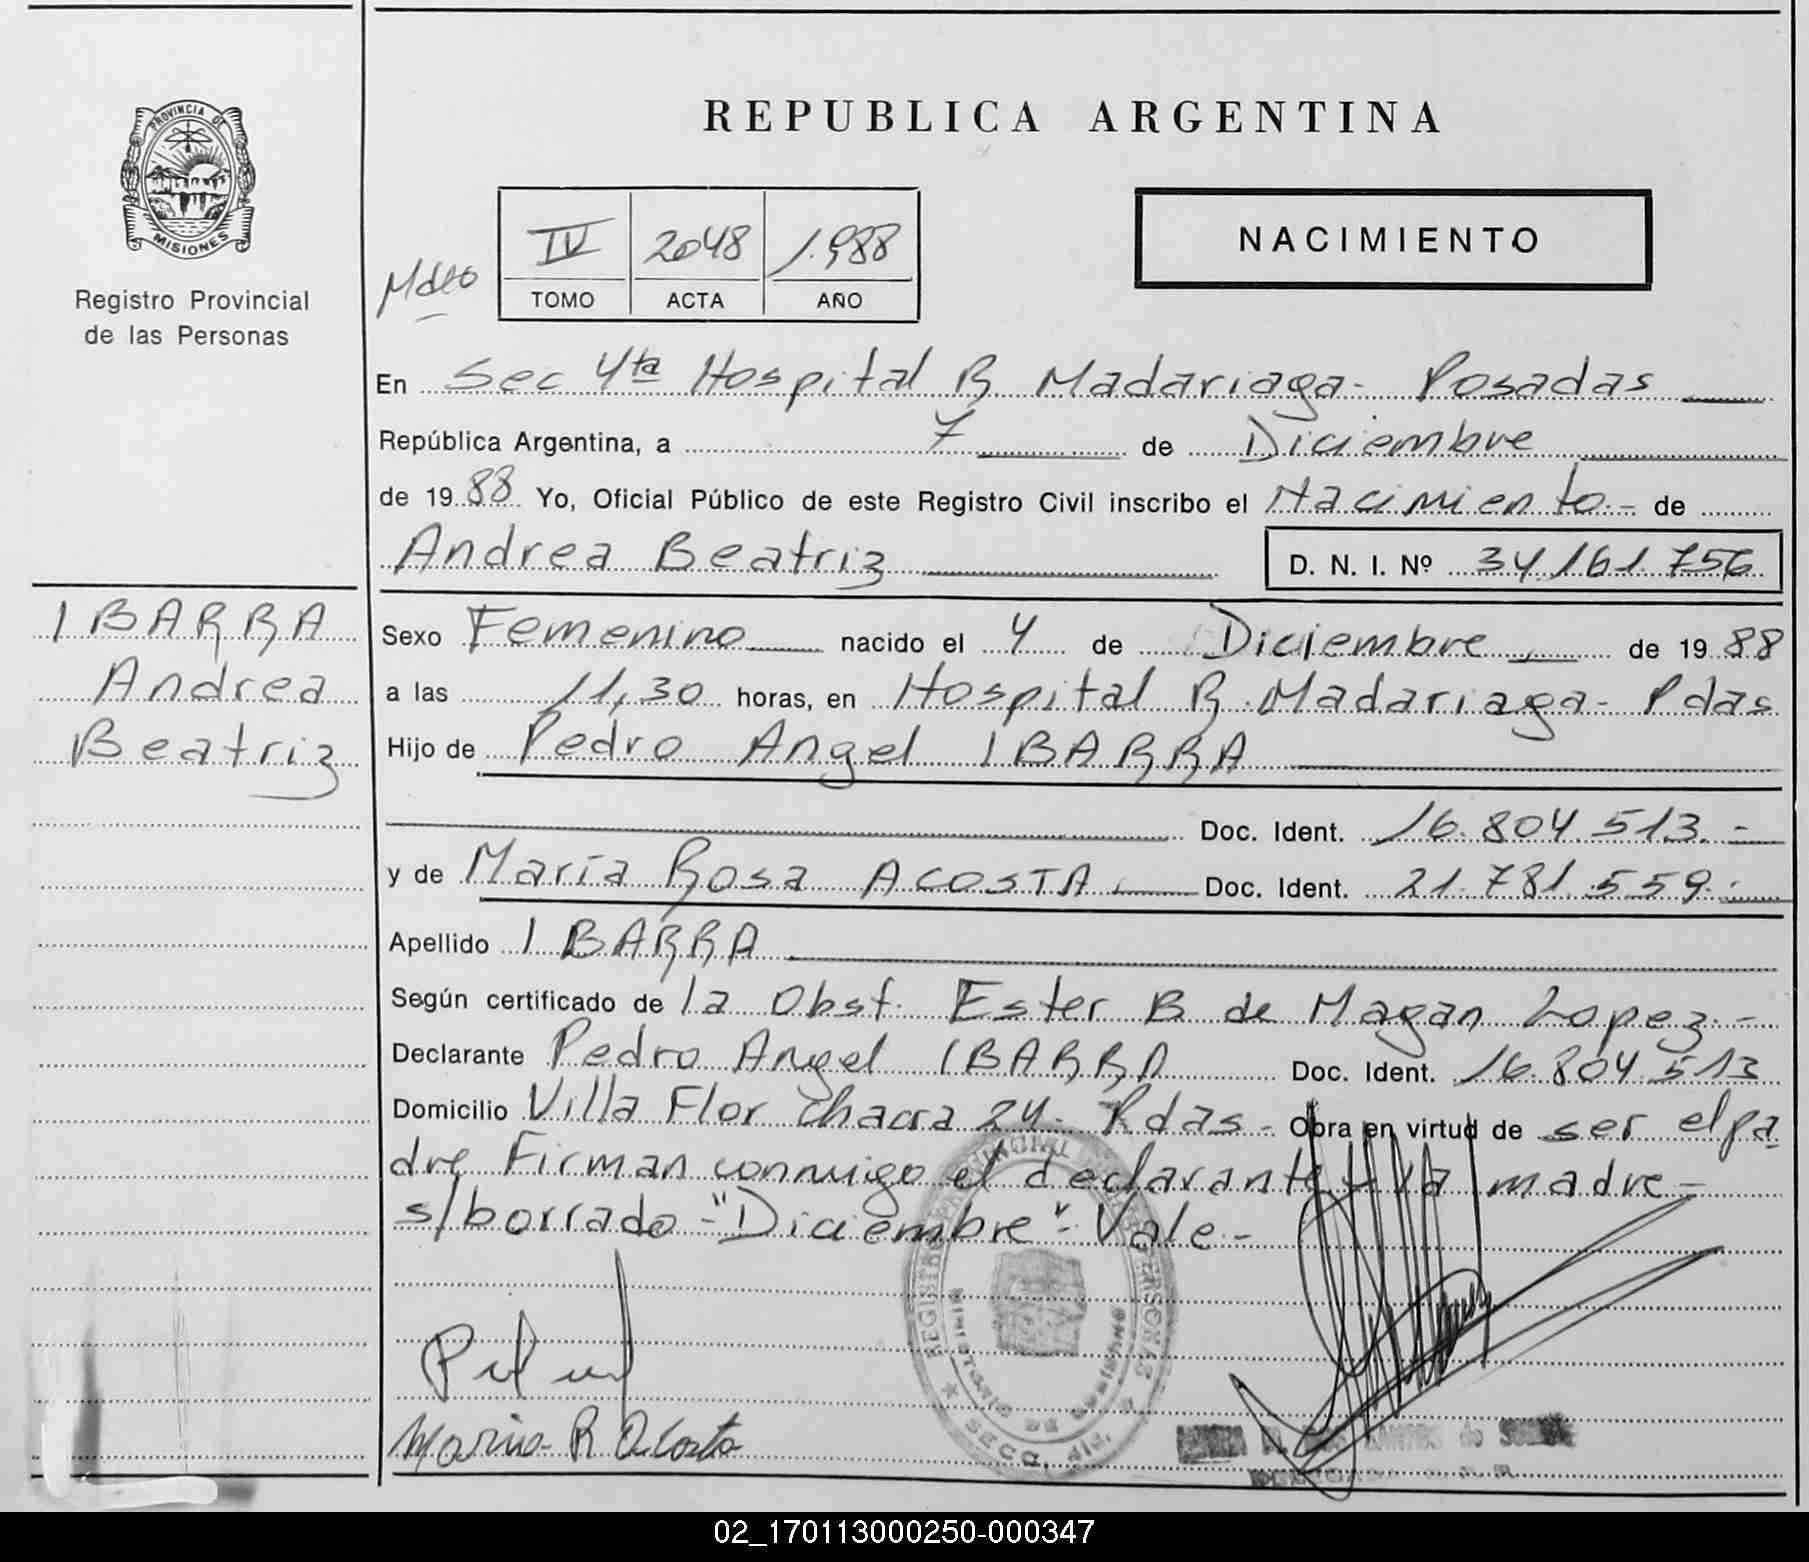 PROVINCIA DE
MISIONES
Registro Provincial
de las Personas
REPUBLICA ARGENTINA
NACIMIENTO
IV 2048 1.988
TOMO ACTA AÑO
En Sec 4ta Hospital R Madariaga - Posadas
República Argentina, a 7 de Diciembre
de 1988 Yo, Oficial Público de este Registro Civil inscribo el Nacimiento - de
Andrea Beatriz D. N. I. Nº 34.161.756
IBARRA
Andrea
Beatriz
Sexo Femenino nacido el 4 de Diciembre de 1988
a las 11,30 horas, en Hospital R. Madariaga - Pdas
Hijo de Pedro Angel IBARRA
Doc. Ident. 16.804.513.-
y de María Rosa ACOSTA Doc. Ident. 21.781.559.-
Apellido IBARRA
Según certificado de la Obst. Ester B de Magan Lopez.-
Declarante Pedro Angel IBARRA Doc. Ident. 16.804.513
Domicilio Villa Flor Chacra 24 - Pdas - Obra en virtud de ser el pa
dre Firman conmigo el declarante y la madre -
s/borrado - "Diciembre" - Vale -
REGISTRO PROVINCIAL DE LAS PERSONAS
MINISTERIO DE GOBIERNO
SECC. 4ta.
Maria R Acosta
02_170113000250-000347